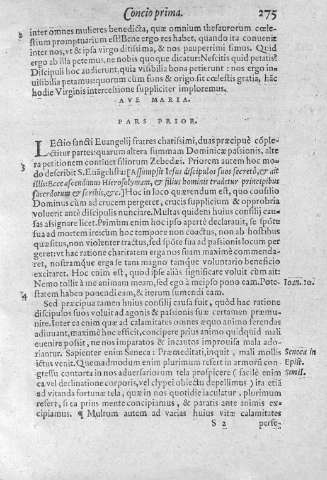 Concio prima. 275
inter omnes mulieres benedicta, quæ omnium thesaurorum cœle-
stium promptuarium est! Bene ergo res habet, quando ita conuenit
inter nos, vt & ipsa virgo ditissima, & nos pauperrimi simus. Quid
ergo ab illa petemus, ne nobis quoque dicatur: Nescitis quid petatis?
Discipuli hoc audierunt, quia visibilia bona petierunt: nos ergo in-
uisibilia petamus: quorum cùm fons & origo sit cœlestis gratia, hãc
hodie Virginis intercessione suppliciter imploremus.
AVE MARIA.
PARS PRIOR.
LEctio sancti Euangelij fratres charissimi, duas præcipuè cõple-
ctitur partes: quarum altera summam Dominicæ passionis, alte
ra petitionem continet filiorum Zebedæi. Priorem autem hoc mo-
3
do describit S. Euãgelista: [Assumpsit Iesus discipulos suos secretò, & ait
illis: Ecce ascendimus Hierosolymam, & filius hominis tradetur principibus
sacerdotum & scribis, &c.] Hoc in loco quærendum est, quo consilio
Dominus cùm ad crucem pergeret, crucis supplicium & opprobria
voluerit ante discipulis nunciare. Multas quidem huius consilij cau-
sas assignare licet. Primùm enim hoc ipso apertè declarauit, se spõte
sua ad mortem iresicut hoc tempore non coactus, non ab hostibus
quæsitus, non violenter tractus, sed spõte sua ad passionis locum per
geret: vt hac ratione charitatem erga nos suam maximè commenda-
ret, nostramque erga se tam magno tamque voluntario beneficio
excitaret. Hoc enim est, quod ipse aliàs significare voluit cùm ait:
Nemo tollit à me animam meam, sed ego à meipso pono eam. Pote- Ioan. 10.
4 statem habeo ponendi eam, & iterum sumendi eam.
Sed præcipua tamen huius consilij causa fuit, quòd hac ratione
discipulos suos voluit ad agonis & passionis suæ certamen præmu-
nire. Inter ea enim quæ ad calamitates omnes æquo animo ferendas
adiuuant, maximè hoc efficit, concipere priùs animo quidquid mali
euenire possit, ne nos imparatos & incautos improuisa mala ado-
riantur. Sapienter enim Seneca: Præmeditati, inquit, mali mollis Seneca in
ictus venit. Quemadmodum enim plurimum refert in armorũ con- Epist.
gressu contorta in nos aduersariorum tela prospicere (facilè enim Simil.
ea vel declinatione corporis, vel clypei obiectu depellimus) ita etiã
ad vitanda fortunæ tela, quæ in nos quotidie iaculatur, plurimum
refert, si ea priùs mente concipiamus, & paratis ante animis ex-
cipiamus. ¶ Multum autem ad varias huius vitæ calamitates
S 2 perfe-